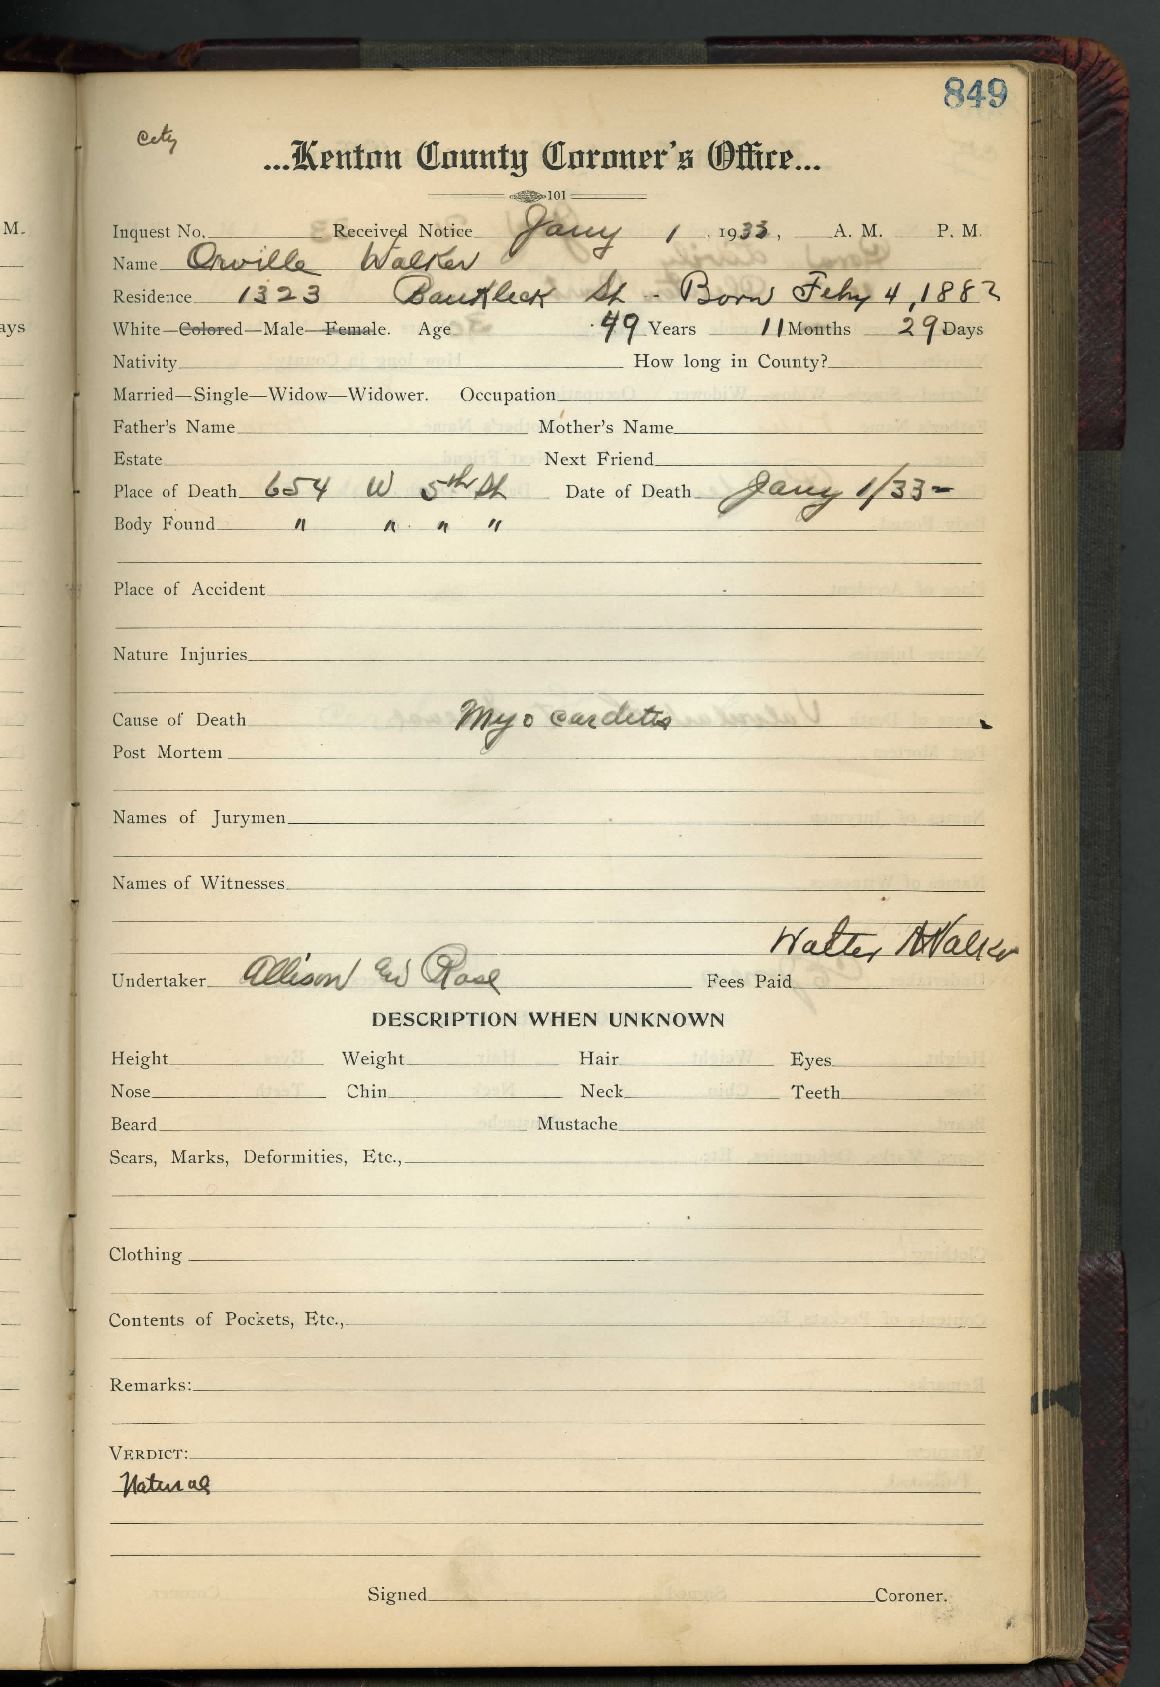 849
City
...Kenton County Coroner's Office...
101
Inquest No. Received Notice Jany 1 1933, A. M. P. M.
Name Orville Walker
Residence 1323 St - Born Feby 4, 1883
White—Colored—Male—Female. Age 49 Years 11 Months 29 Days
Nativity How long in County?
Married—Single—Widow—Widower. Occupation
Father's Name Mother's Name
Estate Next Friend
Place of Death 654 W 5th St Date of Death Jany 1/33-
Body Found " " " "
Place of Accident
Nature Injuries
Cause of Death Myocarditis
Post Mortem
Names of Jurymen
Names of Witnesses
Walter A Walker
Undertaker Allison & Rose Fees Paid
DESCRIPTION WHEN UNKNOWN
Height Weight Hair Eyes
Nose Chin Neck Teeth
Beard Mustache
Scars, Marks, Deformities, Etc.,
Clothing
Contents of Pockets, Etc.,
Remarks:
VERDICT:
Natural
Signed Coroner.